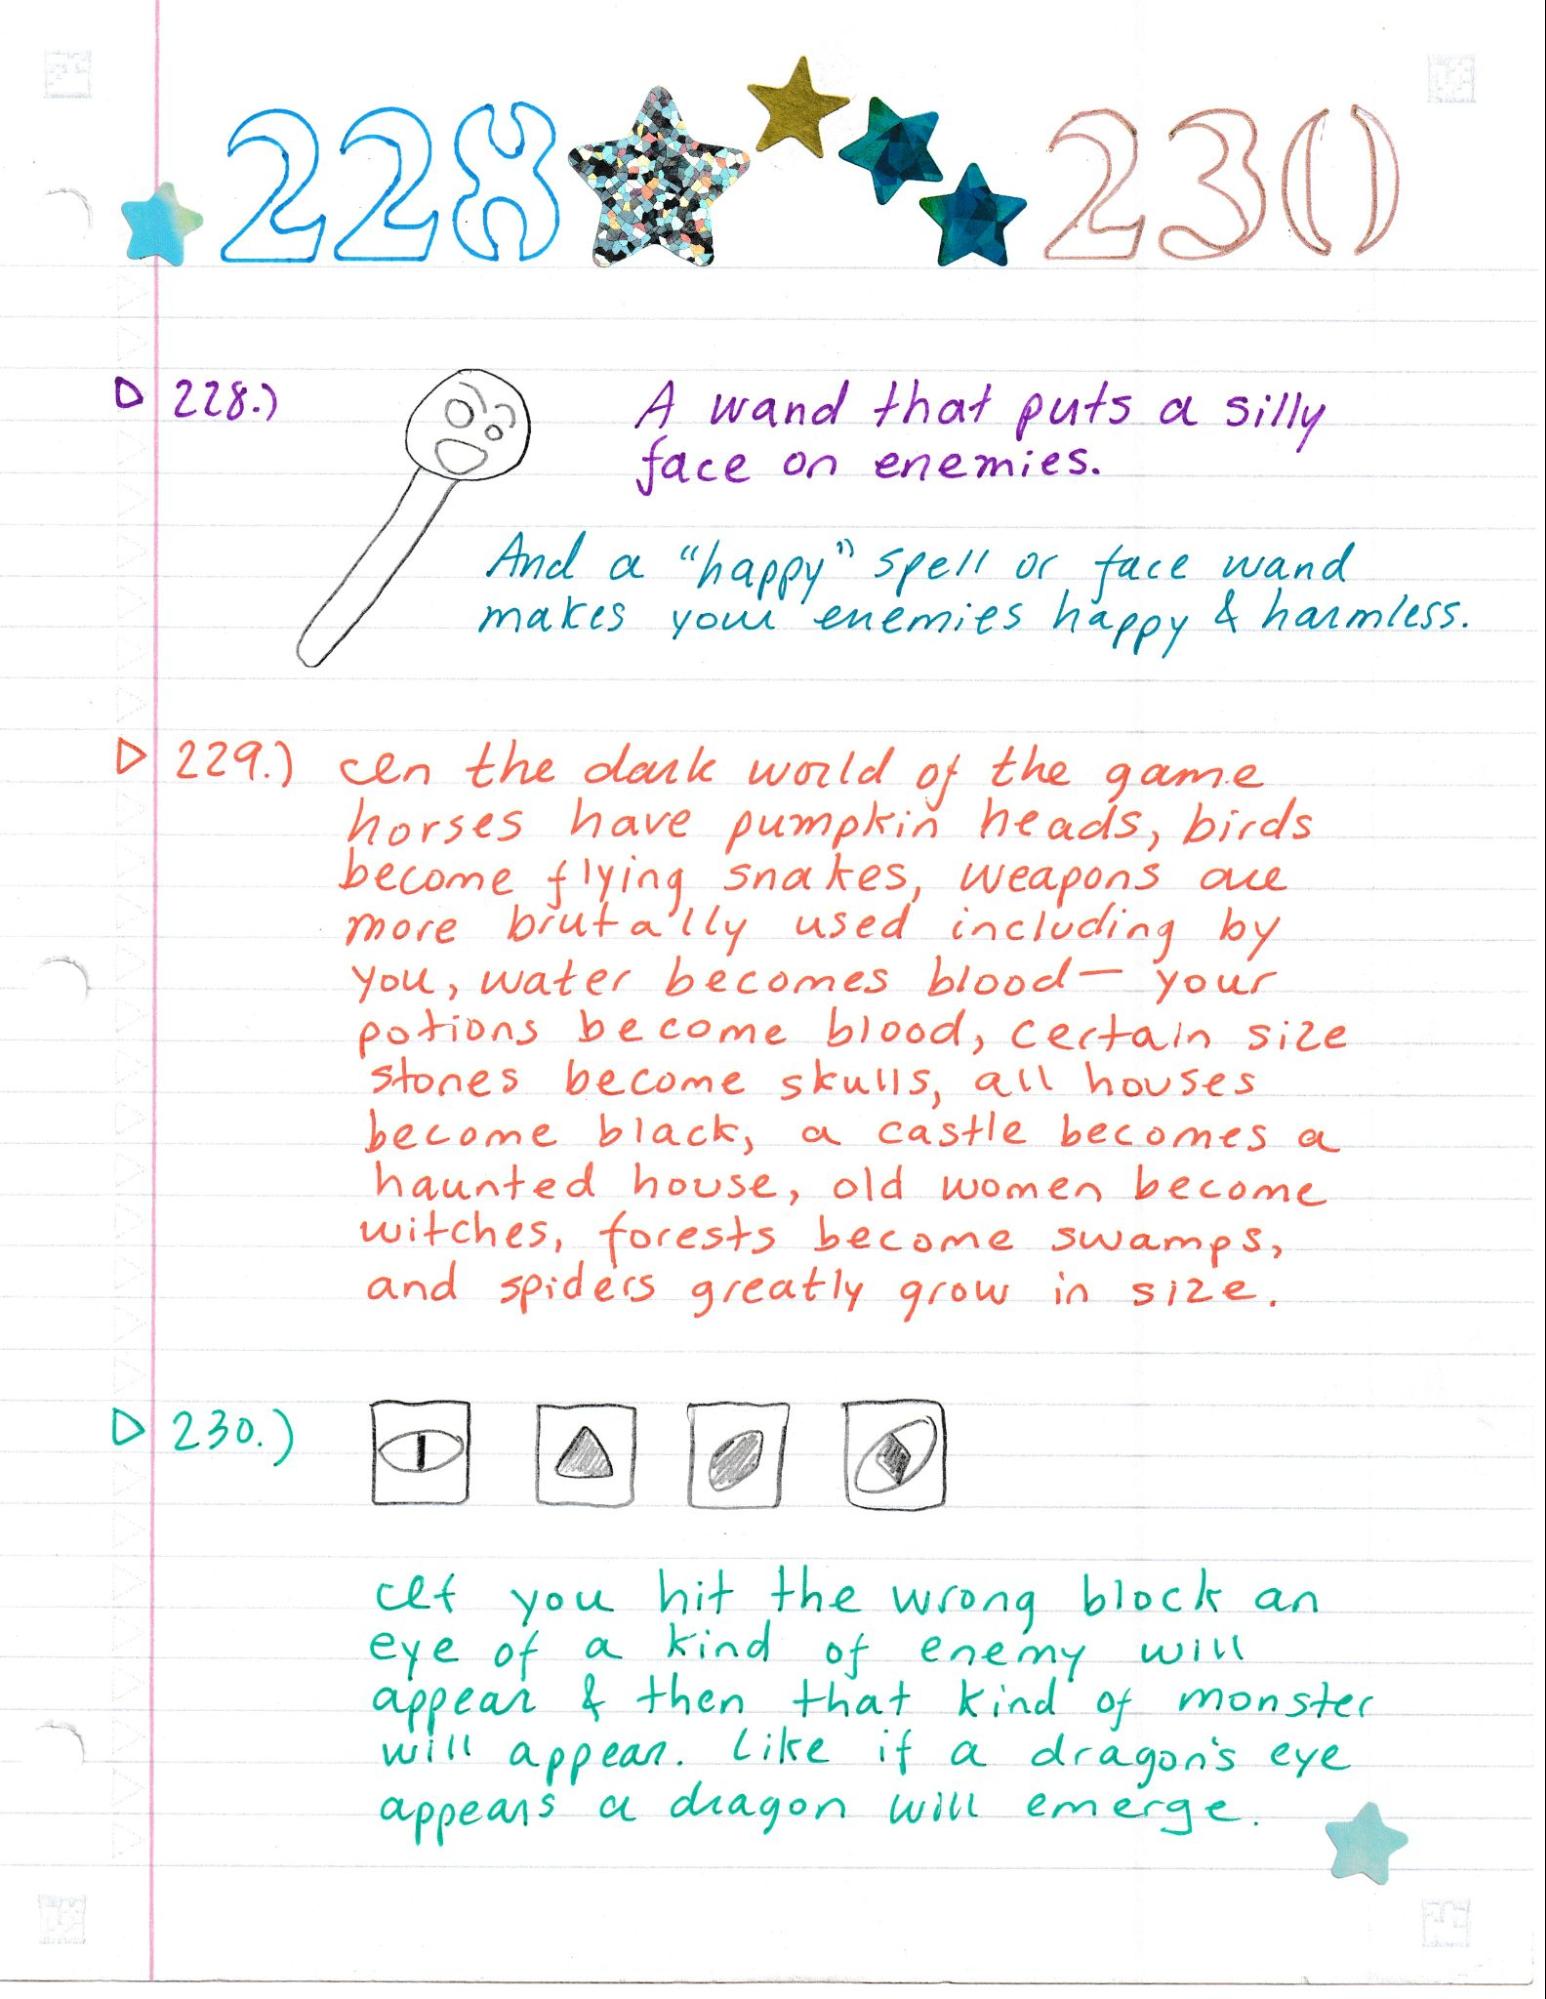 228 230
228.) A wand that puts a silly
face on enemies.
And a "happy" spell or face wand
makes your enemies happy & harmless.
229.) In the dark world of the game
horses have pumpkin heads, birds
become flying snakes, weapons are
more brutally used including by
you, water becomes blood— your
potions become blood, certain size
stones become skulls, all houses
become black, a castle becomes a
haunted house, old women become
witches, forests become swamps,
and spiders greatly grow in size.
230.)
If you hit the wrong block an
eye of a kind of enemy will
appear & then that kind of monster
will appear. Like if a dragon's eye
appears a dragon will emerge.